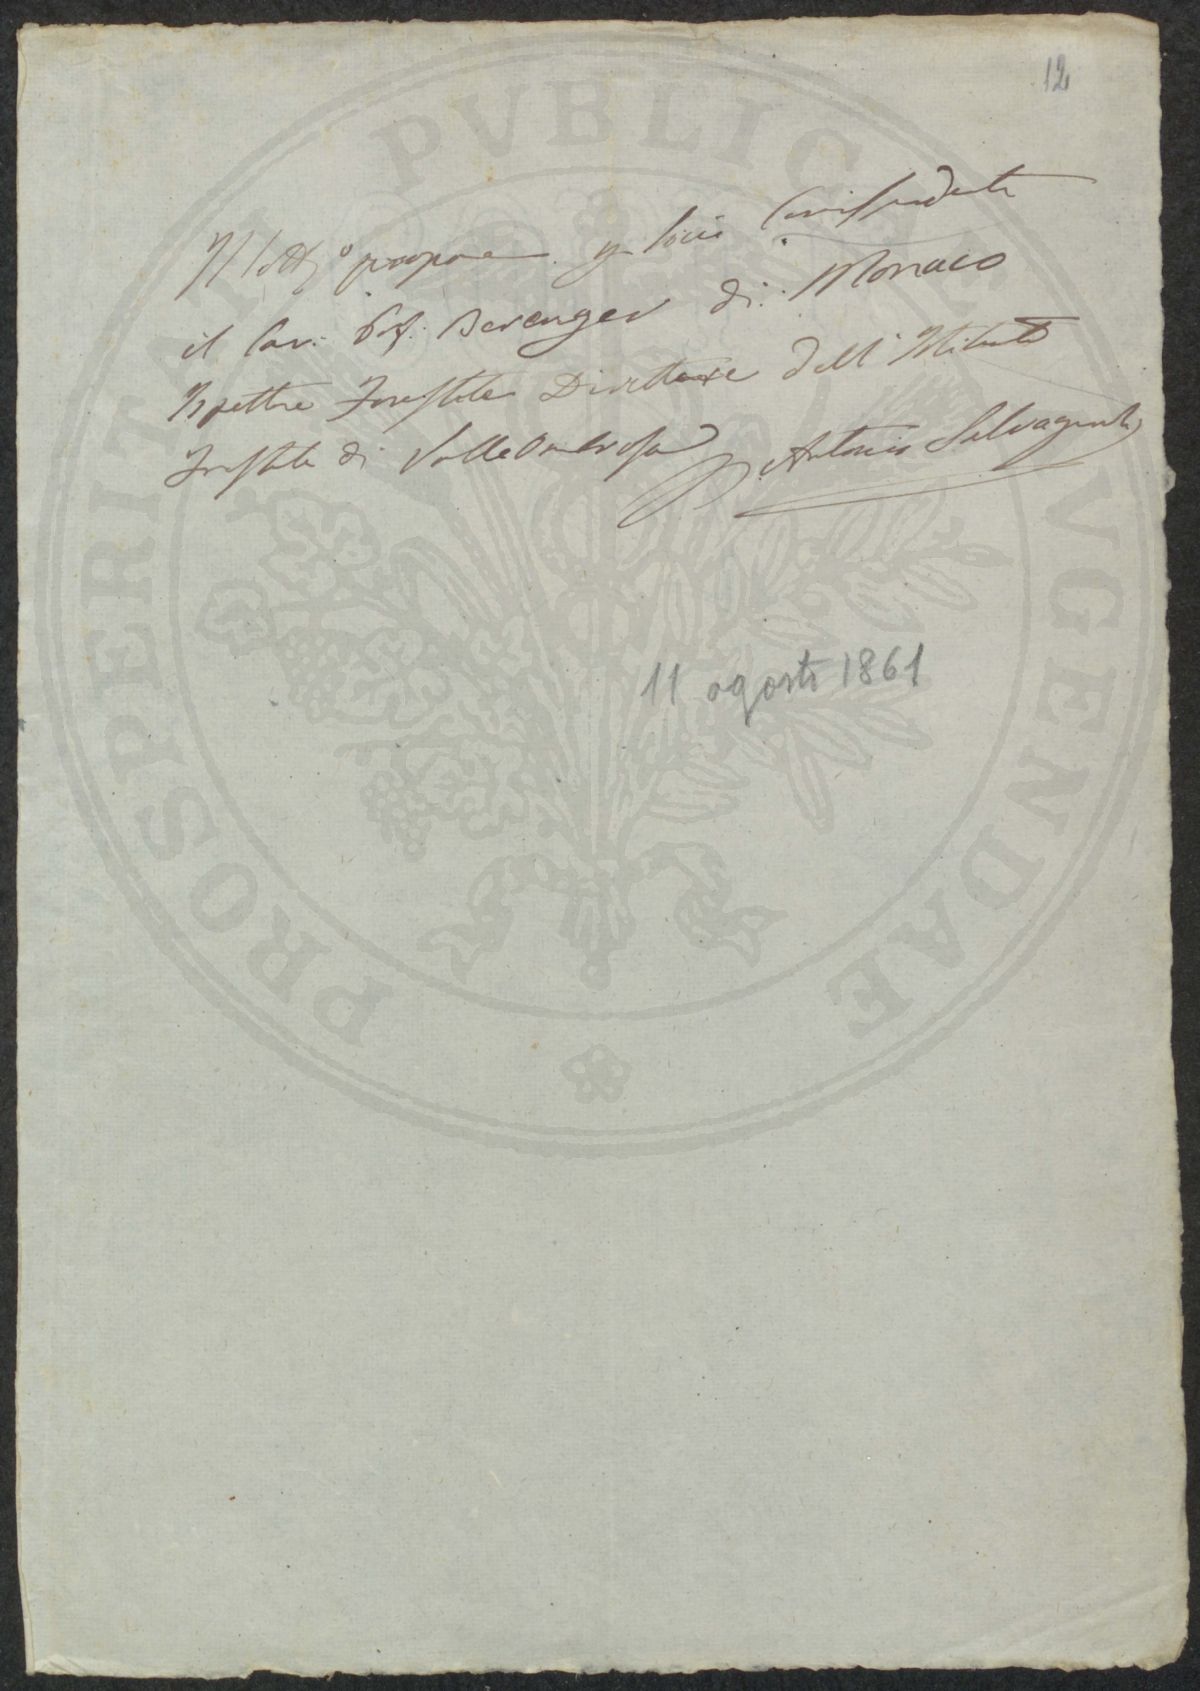 12
Il Sott.º propone p. Socio Corrispondente
il Cav. Prof. Berenger di Monaco
Ispettore Forestale Direttore dell'Istituto
Forestale di Vallombrosa
Antonio Salvagnoli
11 agosto 1861
PROSPERITATI PVBLICAE AVGENDAE